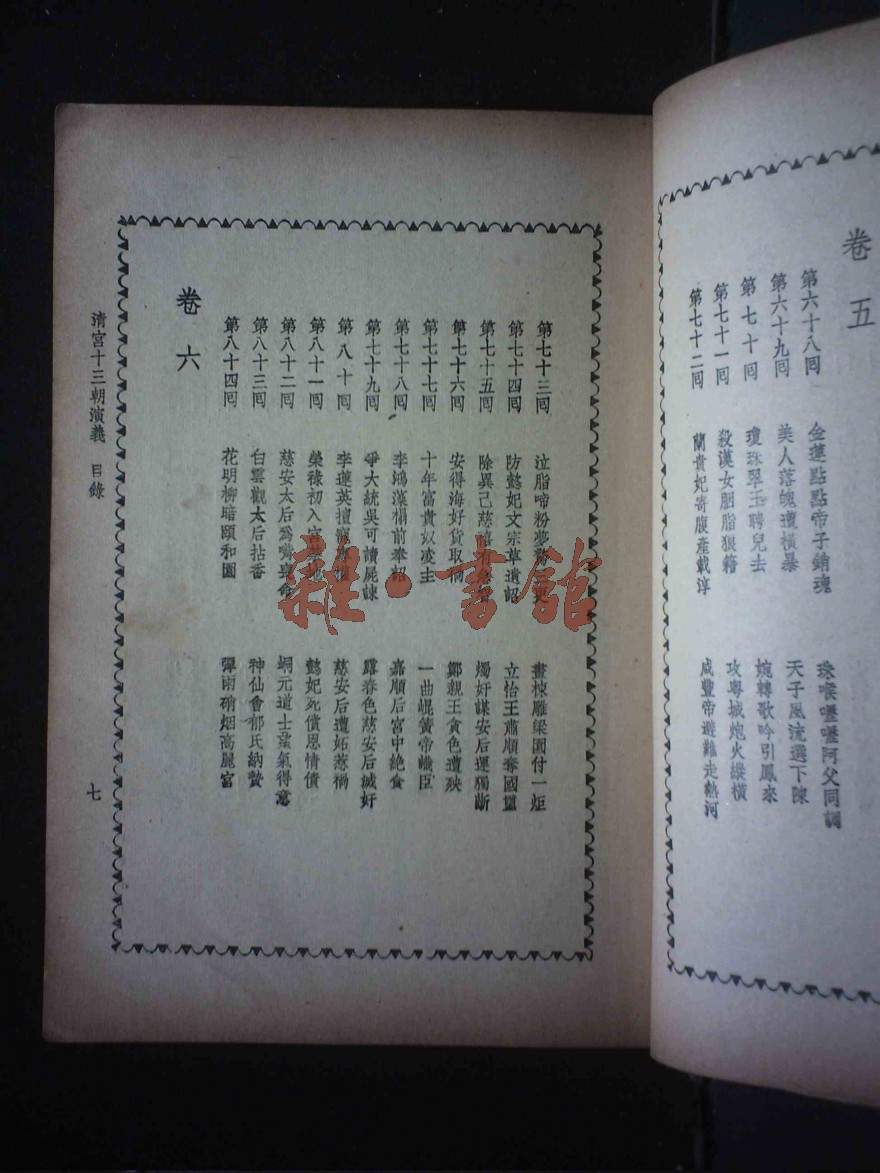 卷五
第六十八囘 金蓮點點帝子銷魂 珠喉嚦嚦阿父同調
第六十九囘 美人落魄遭橫暴 天子風流選下陳
第七十囘 瓊珠翠玉聘兒去 婉轉歌吟引鳳來
第七十一囘 殺漢女胭脂狼籍 攻粵城炮火縱橫
第七十二囘 蘭貴妃寄腹產載淳 咸豐帝避難走熱河
第七十三囘 泣脂啼粉夢 畫棟雕梁園付一炬
第七十四囘 防懿妃文宗草遺詔 立怡王肅順奪國璽
第七十五囘 除異己慈禧 燭奸謀安后運獨斷
第七十六囘 安得海好貨取禍 鄭親王貪色遭殃
第七十七囘 十年富貴奴凌主 一曲崐簧帝幟臣
第七十八囘 李鴻藻榻前奉詔 嘉順后宮中絕食
第七十九囘 爭大統吳可讀屍諫 露春色慈安后滅奸
第八十囘 李蓮英擅寵專權 慈安后遭妬惹禍
第八十一囘 榮祿初入宮禁地 懿妃死償恩情債
第八十二囘 慈安太后爲嘴喪命 峒元道士望氣得意
第八十三囘 白雲觀太后拈香 神仙會郁氏納贄
第八十四囘 花明柳暗頤和園 彈雨硝烟高麗宮
卷六
清宮十三朝演義 目錄
七
雜·書館